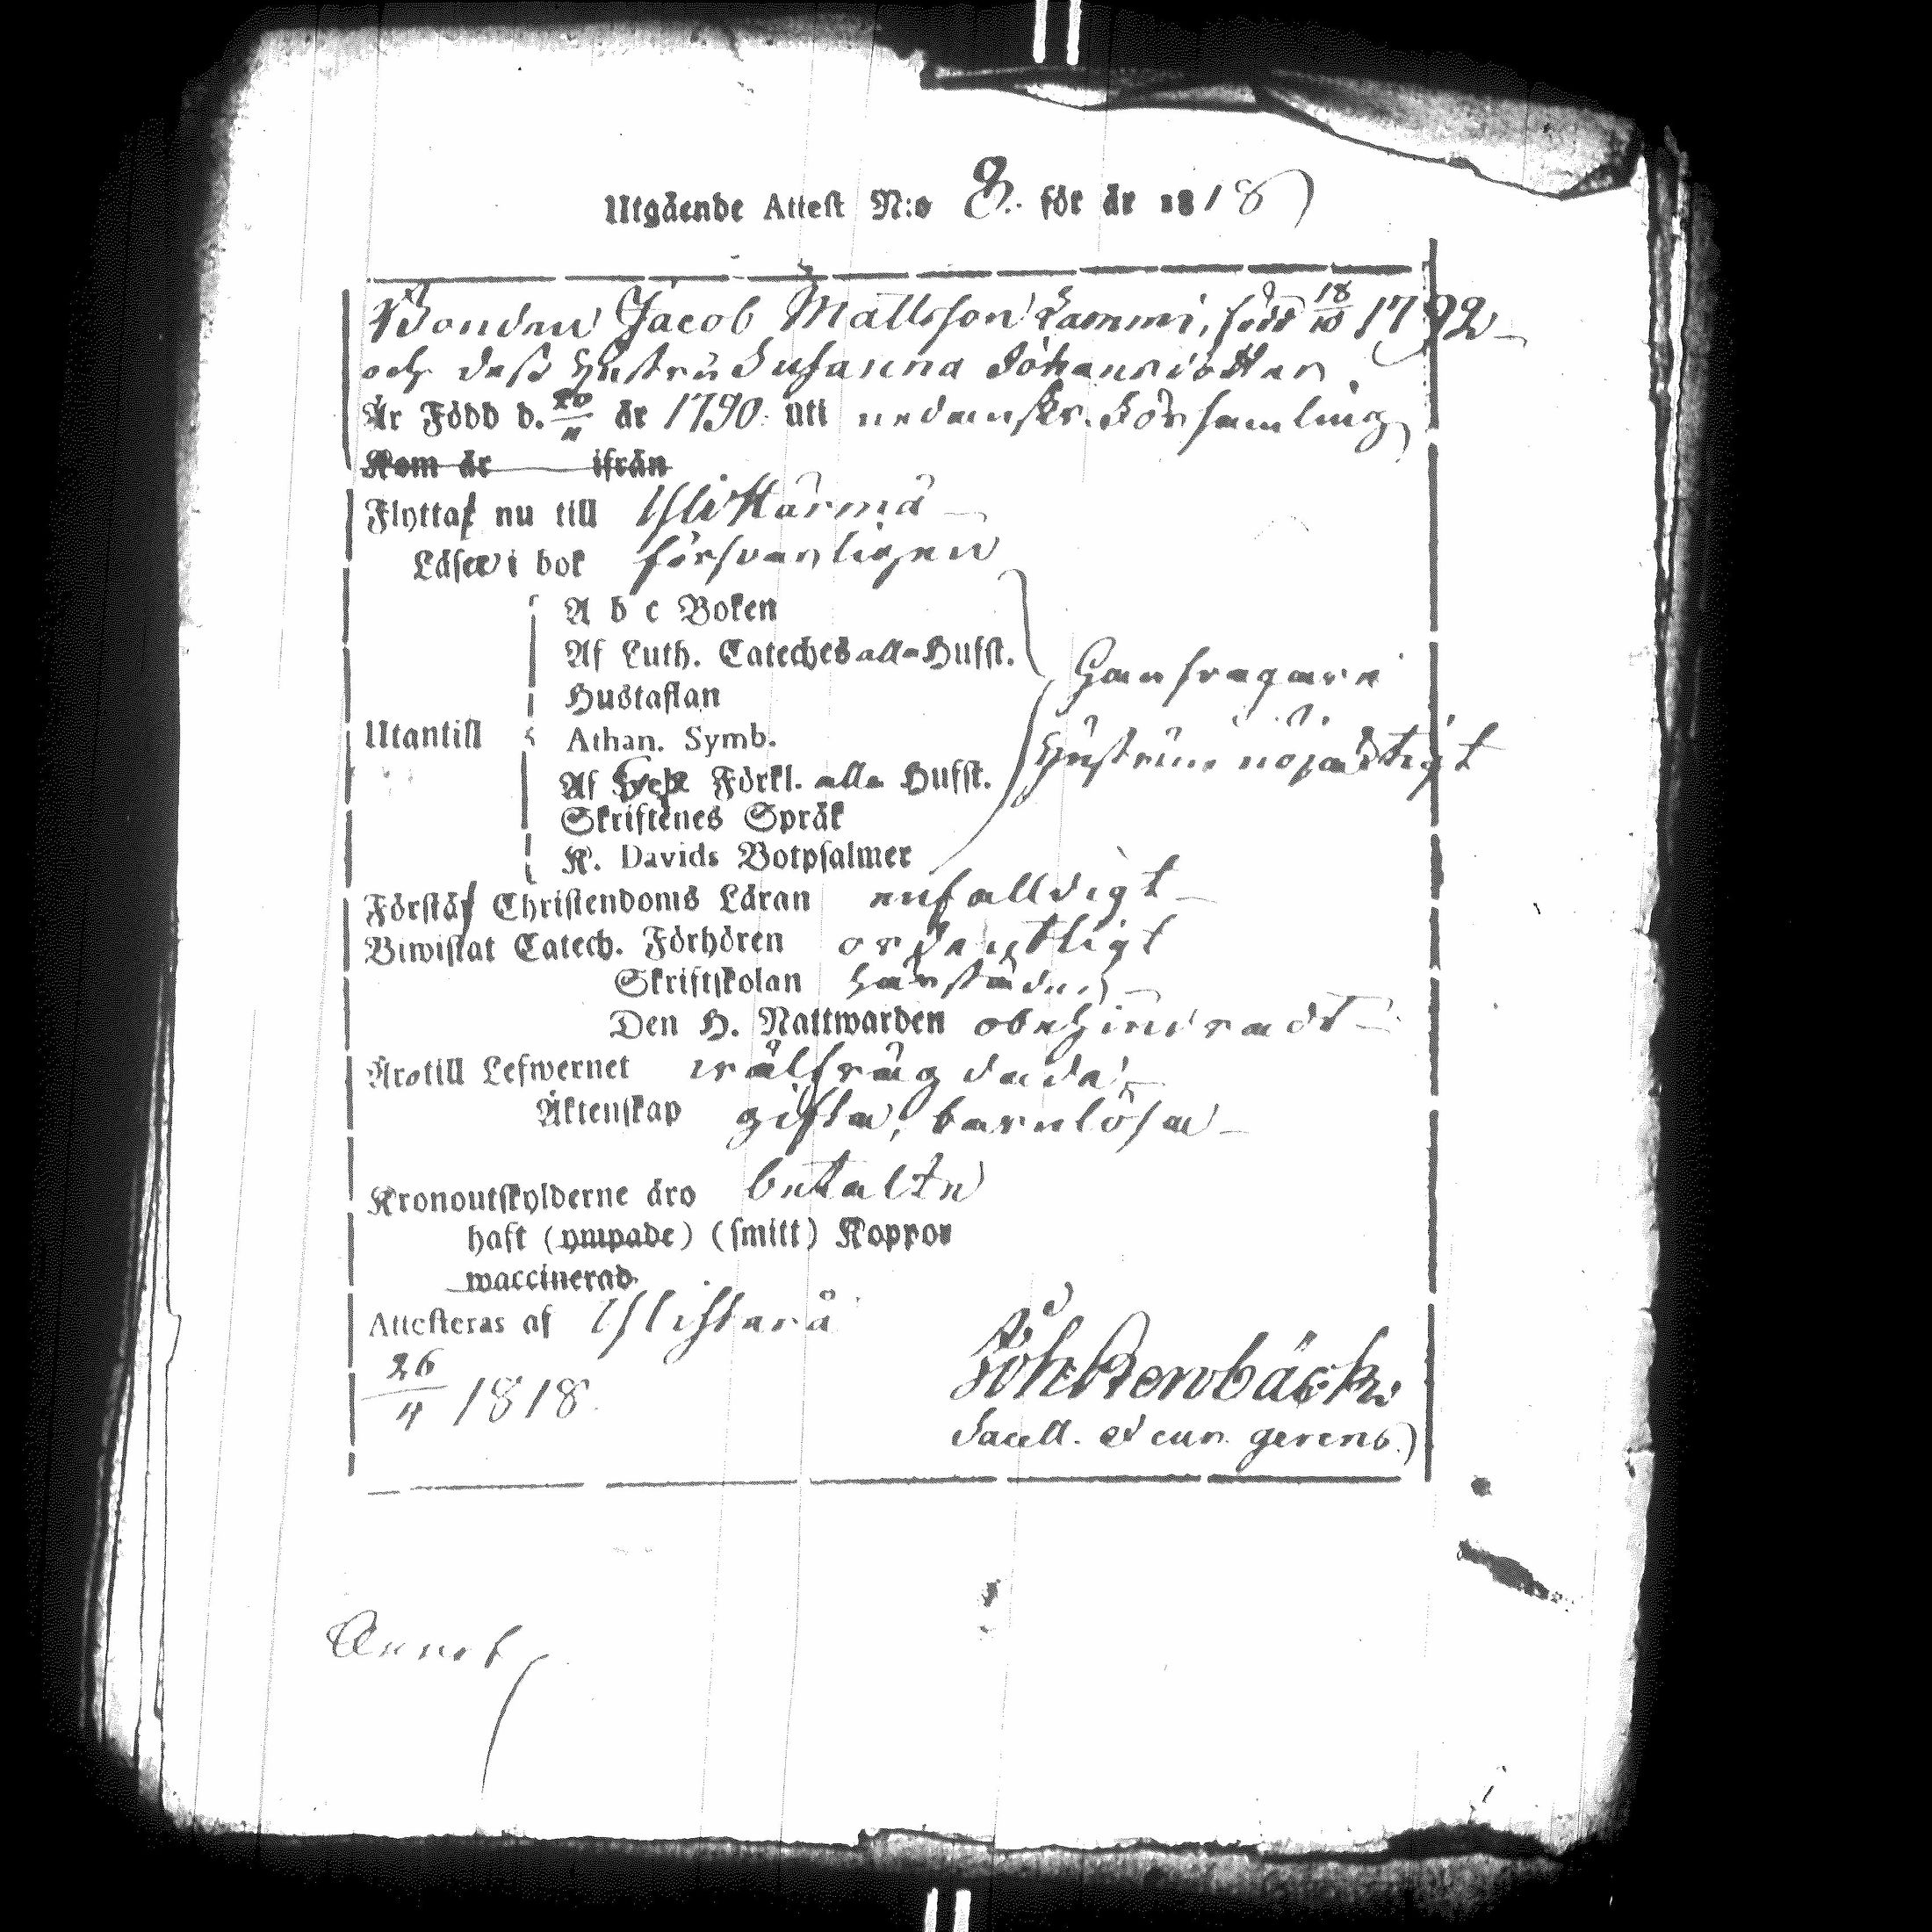 Utgående Attest N:o 8. för år 1818
Bonden Jacob Mattsson Lammi, född 18/10 1792
och dess Hustru Susanna Johansdotter
Är Född d. 20/11 år 1790. uti nedanskr. Församling
Kom år ifrån
Flyttat nu till Ylikärmä
Läser i bok försvarligen
A b c Boken
Af Luth. Cateches alla Hufst.
Han svagare
Hustaflan
Utantill
Athan. Symb.
Hustrun nöjaktigt
Af Förkl. alla Hufst.
Skriftenes Språk
K. Davids Botpsalmer
Förstår Christendoms Läran enfalldigt
Biwistat Catech. Förhören ordentligt
Skriftskolan härstädes
Den H. Nattwarden obehindradt
Äro till Lefwernet välfrägdade
Äktenskap gifta, barnlösa
Kronoutskylderne äro betalte
haft (ympade) (smitt) Koppor
waccinerad
Attesteras af Ylistaro
26/4 1818.
Joh.
Sacell. et cur. gerens.